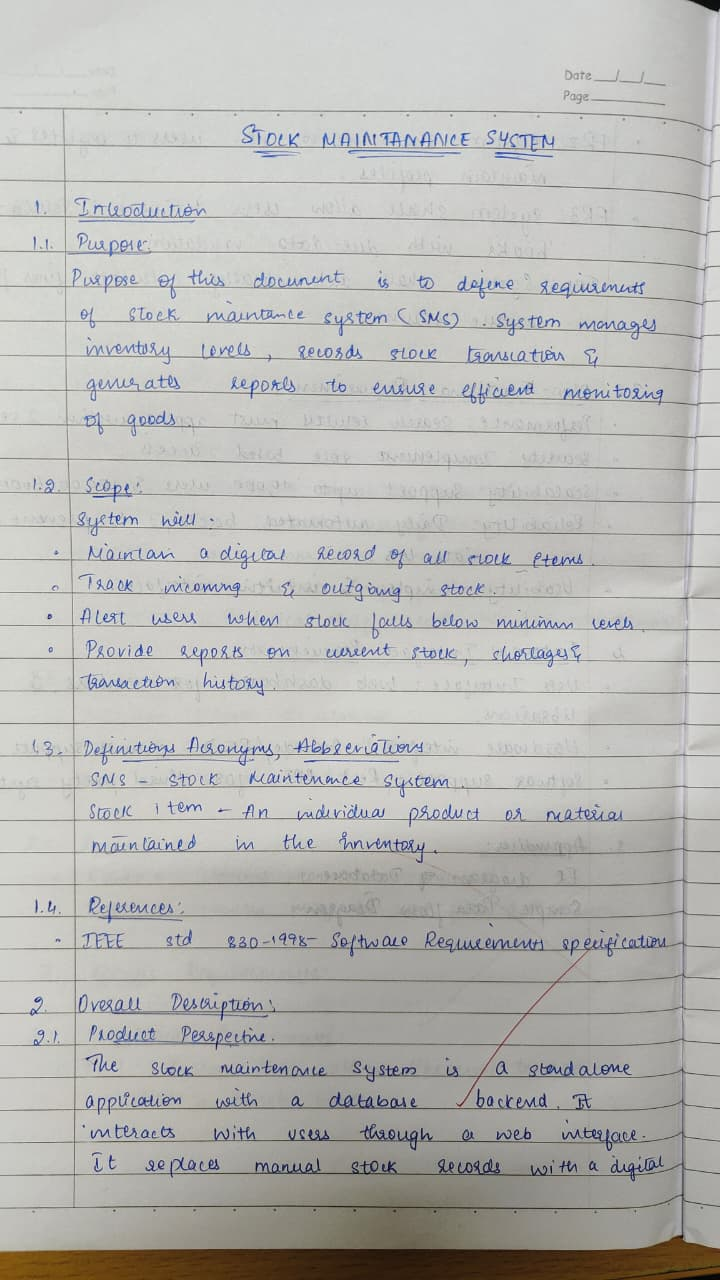 Date __/__/__
Page ______
STOCK MAINTANANCE SYSTEM
1. Introduction
1.1. Purpose:
Purpose of this document is to define requirements
of stock maintance system (SMS). System manages
inventory levels, records stock translation &
generates reports to ensure efficient monitoring
of goods
1.2. Scope:
System will:
• Maintain a digital record of all stock items.
• Track incoming & outgoing stock.
• Alert users when stock falls below minimum levels.
• Provide reports on current stock, shortages &
transaction history.
1.3. Definitions Acronyms, Abbreviations
SMS - Stock Maintenance System
Stock item - An individual product or material
maintained in the inventory.
1.4. References:
- IEEE std 830-1998- Software Requirements specification
2. Overall Description:
2.1. Product Perspective.
The stock maintenance system is a standalone
application with a database backend. It
interacts with users through a web interface.
It replaces manual stock records with a digital